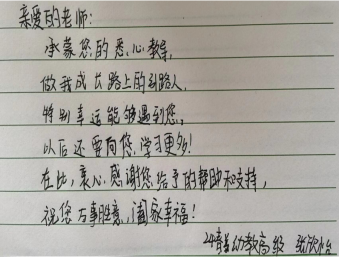 亲爱的老师：
承蒙您的悉心教导，
做我成长路上的引路人，
特别幸运能够遇到您，
以后还要向您学习更多！
在此，衷心感谢您给予的帮助和支持，
祝您万事胜意，阖家幸福！
幼教高级 张欣怡